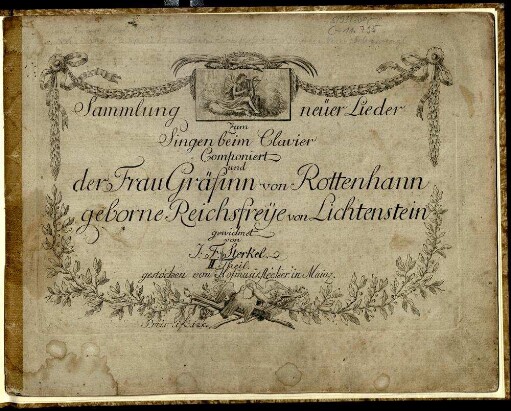 Sammlung neüer Lieder
Zum
Singen beim Clavier
Componiert
und
der Frau Gräfinn von Rottenhann
geborne Reichsfreÿe von Lichtenstein
gewidmet
von
J. F. Sterkel
II Theil
gestochen von
in Mainz